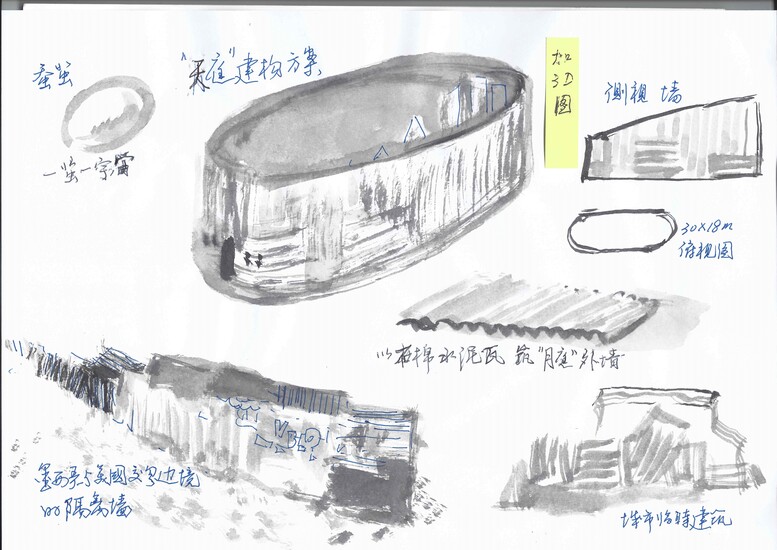 蚕茧
一茧一宇宙
“天庭”建构方案
加边图
侧视 墙
30×18m
俯视图
以石棉水泥瓦 筑“月庭”外墙
墨西哥与美國交界边境
的隔离墙
城市临時建筑